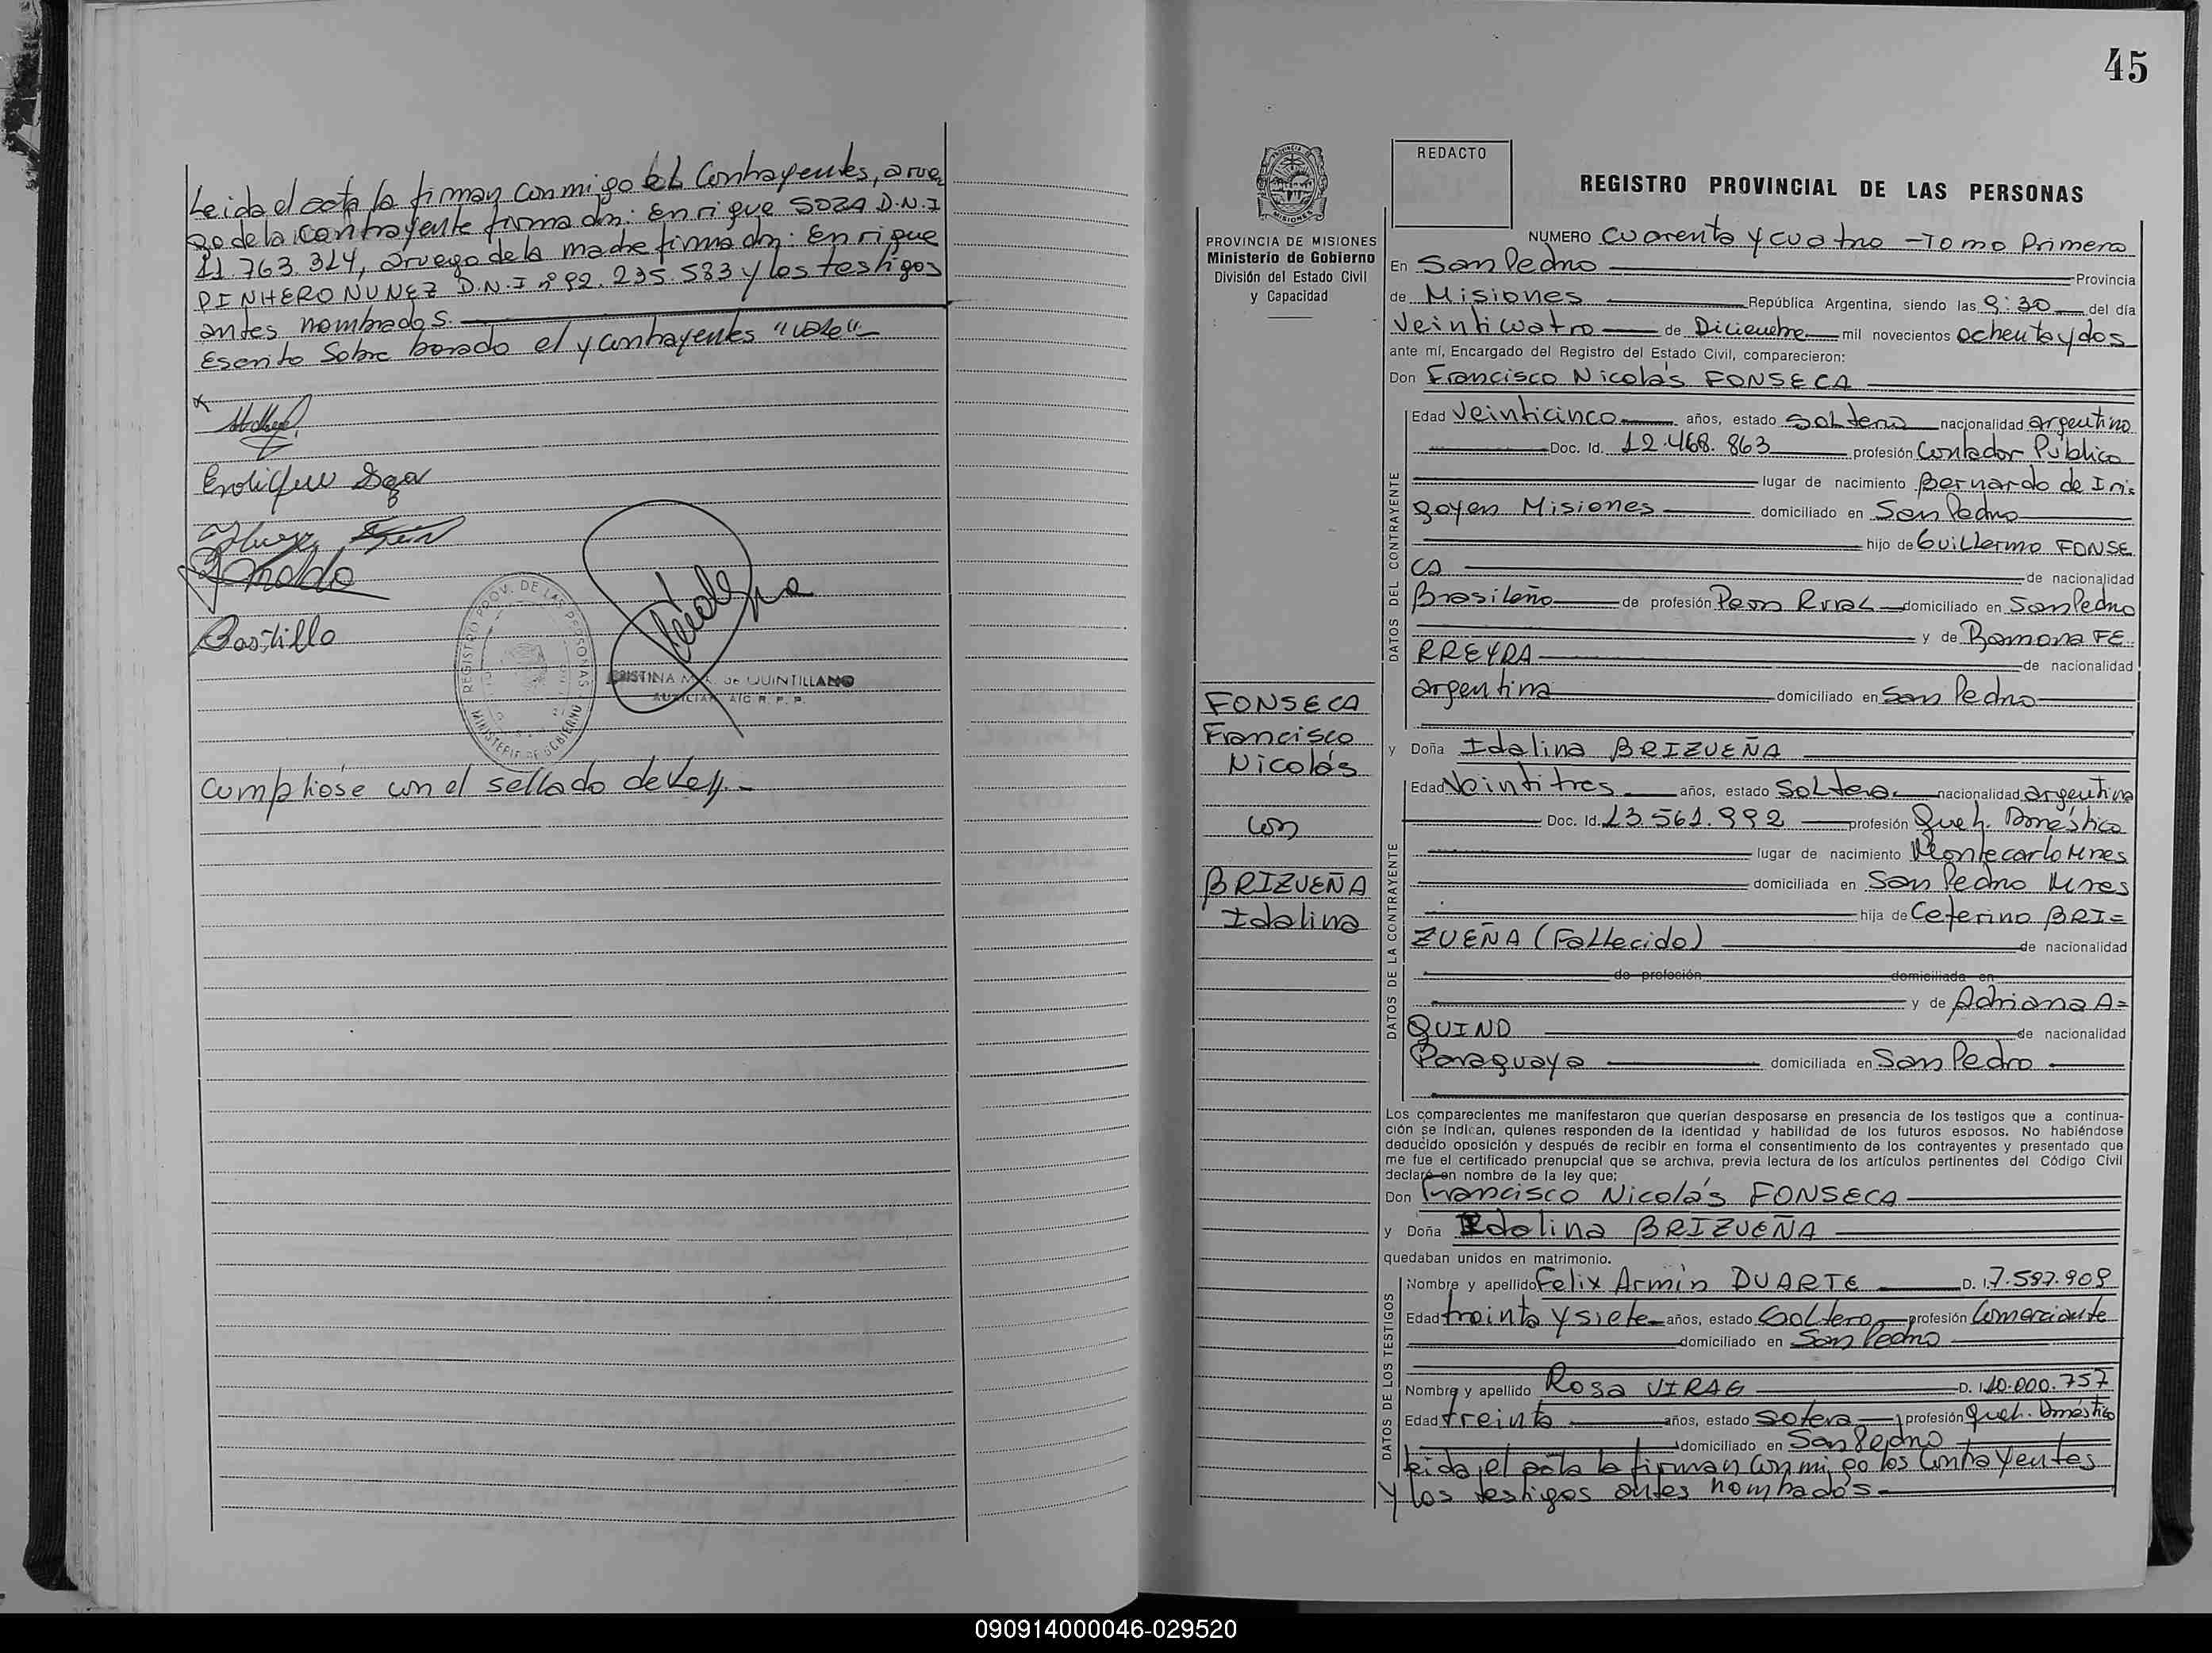 Leida el acta la firman conmigo el Contrayentes, a rue
go de la contrayente firma dn: Enrique SOZA D.N.I
11.763.314, a ruego de la madre firma dn: Enrique
PINHERO NUNEZ D.N.I nº 92.235.583 y los testigos
antes nombrados.
Escrito sobre borado el y contrayentes "vale"
Enrique Soza
Castillo
REGISTRO PROV. DE LAS PERSONAS
MINISTERIO DE GOBIERNO
DE QUINTILLANO
Cumpliose con el sellado de Ley.-
45
PROVINCIA DE MISIONES
Ministerio de Gobierno
División del Estado Civil
y Capacidad
FONSECA
Francisco
Nicolás
con
BRIZUEÑA
Idalina
REDACTO
REGISTRO PROVINCIAL DE LAS PERSONAS
NUMERO Cuarenta y cuatro - Tomo Primero
En San Pedro Provincia
de Misiones República Argentina, siendo las 9:30 del día
Veinticuatro de Diciembre mil novecientos ochenta y dos
ante mí, Encargado del Registro del Estado Civil, comparecieron:
Don Francisco Nicolás FONSECA
DATOS DEL CONTRAYENTE
Edad Veinticinco años, estado Soltero nacionalidad argentino
Doc. Id. 12.468.863 profesión Contador Público
lugar de nacimiento Bernardo de Iri-
goyen Misiones domiciliado en San Pedro
hijo de Guillermo FONSE
CA de nacionalidad
Brasileño de profesión Peon Rural domiciliado en San Pedro
y de Ramona FE
RREYRA de nacionalidad
argentina domiciliado en San Pedro
y Doña Idalina BRIZUEÑA
DATOS DE LA CONTRAYENTE
Edad Veintitres años, estado Soltera nacionalidad argentina
Doc. Id. 13.561.992 profesión Queh. Doméstico
lugar de nacimiento Montecarlo Mnes
domiciliada en San Pedro Mnes
hija de Ceferino BRI=
ZUEÑA (Fallecido) de nacionalidad
de profeción domiciliada en
y de Adriana A=
QUINO de nacionalidad
Paraguaya domiciliada en San Pedro
Los comparecientes me manifestaron que querían desposarse en presencia de los testigos que a continua-
ción se indican, quienes responden de la identidad y habilidad de los futuros esposos. No habiéndose
deducido oposición y después de recibir en forma el consentimiento de los contrayentes y presentado que
me fue el certificado prenupcial que se archiva, previa lectura de los artículos pertinentes del Código Civil
declaré en nombre de la ley que:
Don Francisco Nicolás FONSECA
y Doña Idalina BRIZUEÑA
quedaban unidos en matrimonio.
DATOS DE LOS TESTIGOS
Nombre y apellido Felix Armin DUARTE D. I. 7.597.909
Edad treinta y siete años, estado Soltero profesión Comerciante
domiciliado en San Pedro
Nombre y apellido Rosa VIRAG D. I. 10.000.757
Edad treinta años, estado Sotera profesión Queh. Doméstico
domiciliado en San Pedro
leida el acta la firman conmigo los Contrayentes
y los testigos antes nombrados.-
090914000046-029520